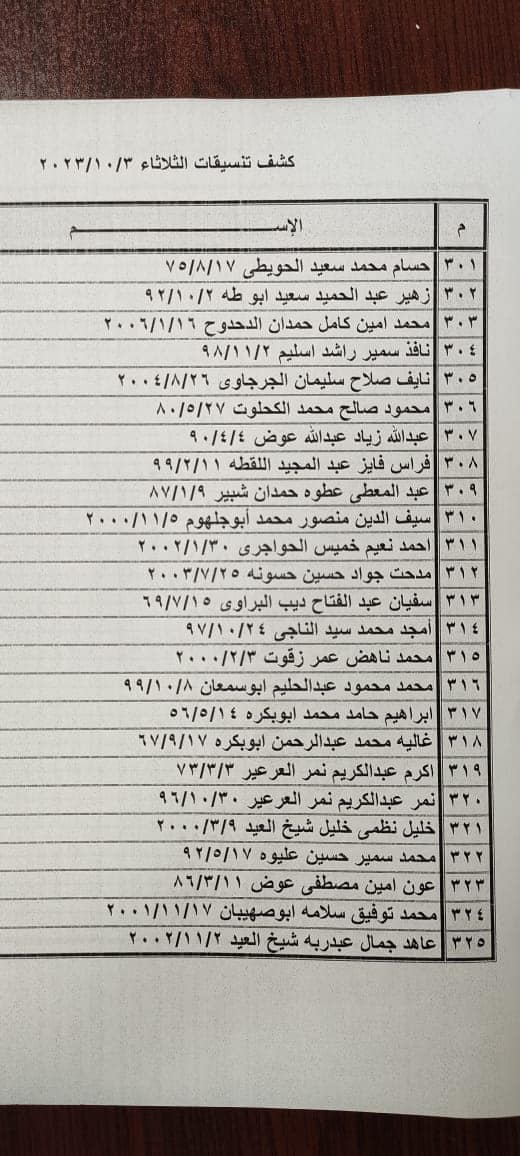 كشف تنسيقات الثلاثاء ٢٠٢٣/١٠/٣
م الإســـــــــم
٣٠١ حسام محمد سعيد الحويطى ٧٥/٨/١٧
٣٠٢ زهير عبد الحميد سعيد ابو طه ٩٢/١٠/٢
٣٠٣ محمد امين كامل حمدان الدحدوح ٢٠٠٦/١/١٦
٣٠٤ نافذ سمير راشد اسليم ٩٨/١١/٢
٣٠٥ نايف صلاح سليمان الجرجاوى ٢٠٠٤/٨/٢٦
٣٠٦ محمود صالح محمد الكحلوت ٨٠/٥/٢٧
٣٠٧ عبدالله زياد عبدالله عوض ٩٠/٤/٤
٣٠٨ فراس فايز عبد المجيد اللقطه ٩٩/٢/١١
٣٠٩ عبد المعطى عطوه حمدان شبير ٨٧/١/٩
٣١٠ سيف الدين منصور محمد أبوجلهوم ٢٠٠٠/١١/٥
٣١١ احمد نعيم خميس الحواجرى ٢٠٠٢/١/٣٠
٣١٢ مدحت جواد حسين حسونه ٢٠٠٣/٧/٢٥
٣١٣ سفيان عبد الفتاح ديب البراوى ٦٩/٧/١٥
٣١٤ أمجد محمد سيد الناجى ٩٧/١٠/٢٤
٣١٥ محمد ناهض عمر زقوت ٢٠٠٠/٢/٣
٣١٦ محمد محمود عبدالحليم ابوسمعان ٩٩/١٠/٨
٣١٧ ابراهيم حامد محمد ابوبكره ٥٦/٥/١٤
٣١٨ غاليه محمد عبدالرحمن ابوبكره ٦٧/٩/١٧
٣١٩ اكرم عبدالكريم نمر العرعير ٧٣/٣/٣
٣٢٠ نمر عبدالكريم نمر العرعير ٩٦/١٠/٣٠
٣٢١ خليل نظمى خليل شيخ العيد ٢٠٠٠/٣/٩
٣٢٢ محمد سمير حسين عليوه ٩٢/٥/١٧
٣٢٣ عون امين مصطفى عوض ٨٦/٣/١١
٣٢٤ محمد توفيق سلامه ابوصهيبان ٢٠٠١/١١/١٧
٣٢٥ عاهد جمال عبدربه شيخ العيد ٢٠٠٢/١١/٢